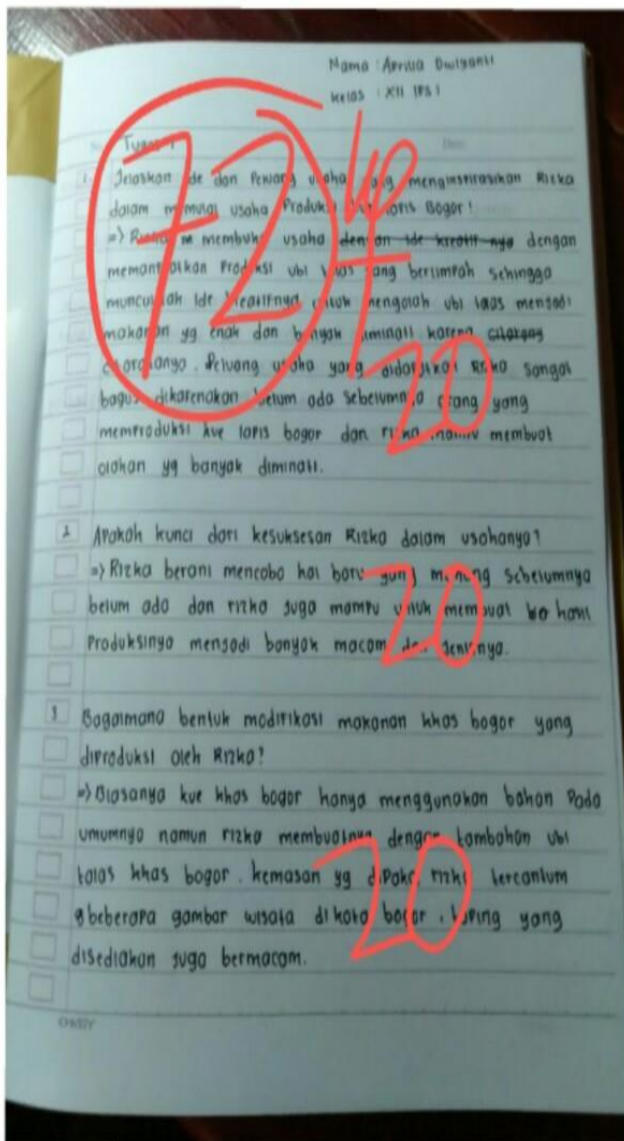 Nama : Aprilia Dwiyanti
Kelas : XII IPS 1
Tugas 1
1. Jelaskan ide dan Peluang usaha yang menginspirasikan Rizka
dalam memulai usaha Produksi lapis Bogor!
=> membuka usaha dengan ide kreatif nya dengan
memanfaatkan Produksi ubi talas yang berlimpah sehingga
muncullah ide kreatifnya untuk mengolah ubi talas menjadi
makanan yg enak dan banyak diminati karena
. Peluang usaha yang Rizka sangat
bagus dikarenakan belum ada sebelumnya orang yang
memproduksi kue lapis bogor dan rizka mampu membuat
olahan yg banyak diminati.
2 Apakah kunci dari kesuksesan Rizka dalam usahanya?
=> Rizka berani mencoba hal baru yang memang sebelumnya
belum ada dan rizka juga mampu untuk membuat hasil
Produksinya menjadi banyak macam dan jenisnya.
3 Bagaimana bentuk modifikasi makanan khas bogor yang
diproduksi oleh Rizka?
=> Biasanya kue khas bogor hanya menggunakan bahan Pada
umumnya namun rizka membuatnya dengan tambahan ubi
talas khas bogor. kemasan yg dipakai rizka tercantum
beberapa gambar wisata di kota bogor. toping yang
disediakan juga bermacam.
72
20
20
20